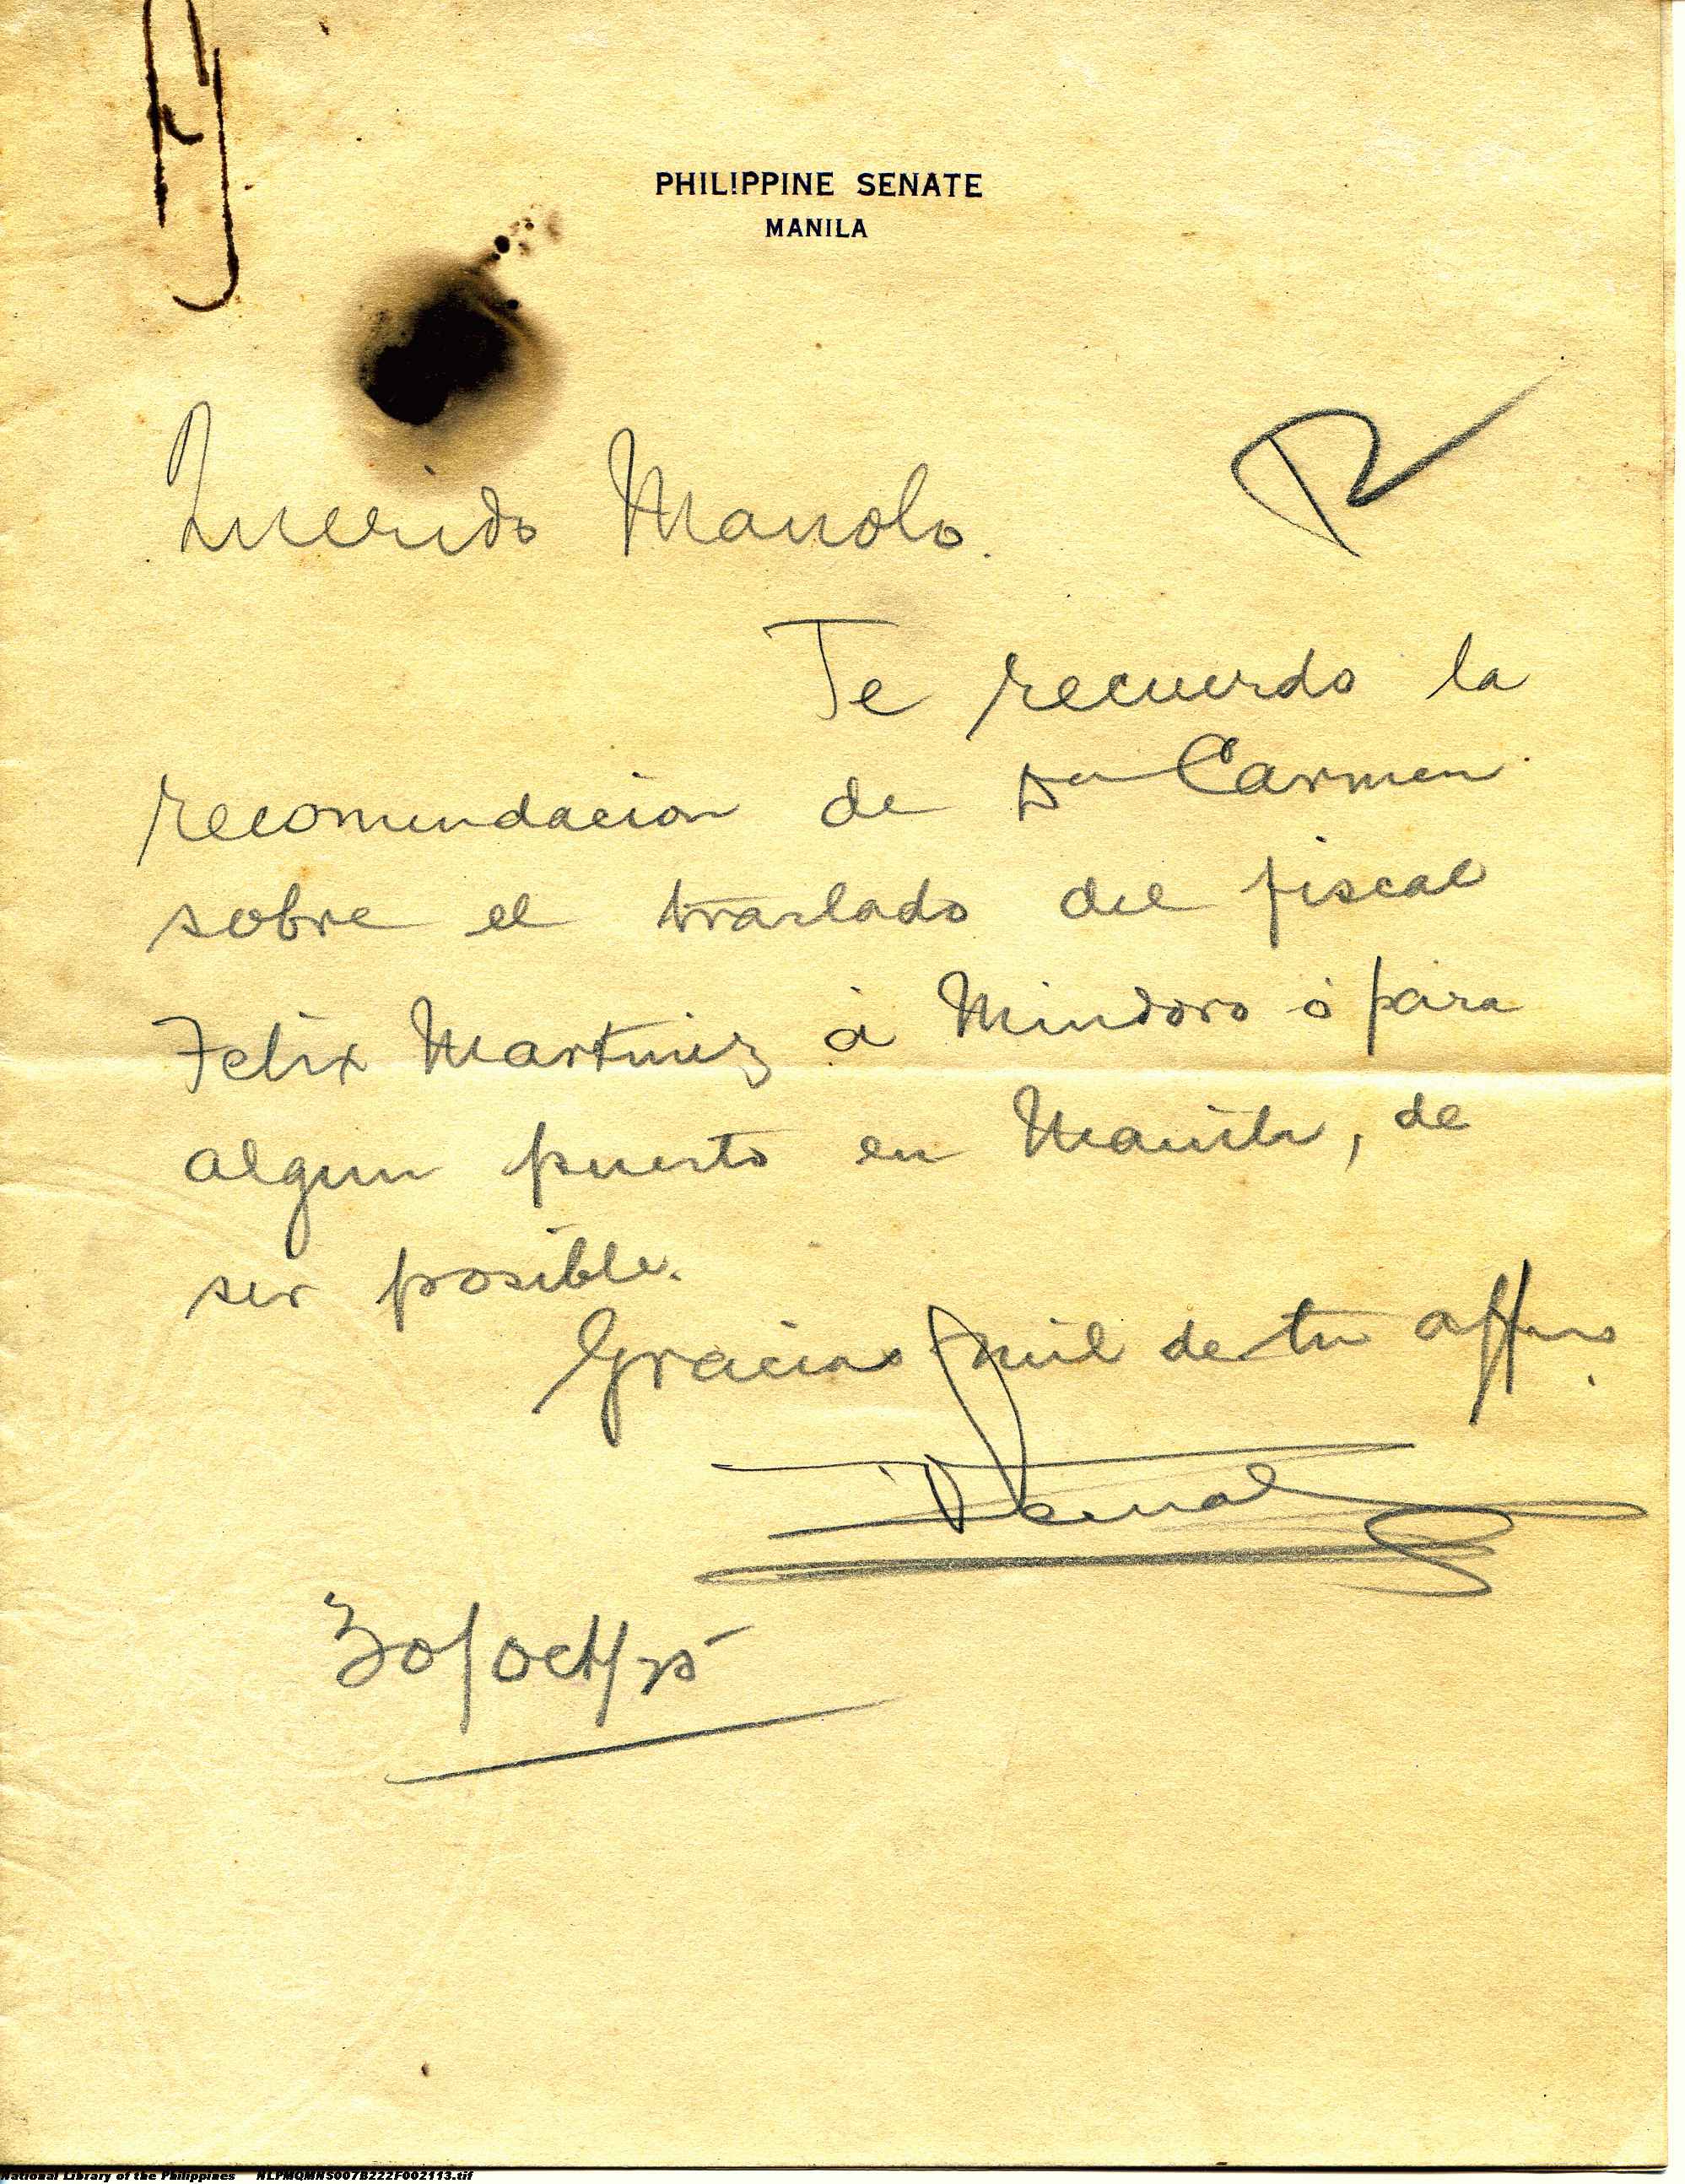 PHILIPPINE SENATE
MANILA
Querido Manolo.
Te recuerdo la
recomendacion de Da Carmen
sobre el traslado del fiscal
Felix Martinez á Mindoro ó para
algun puesto en Manila, de
ser posible.
Gracias mil de tu affmo.
30/oct/35
National Library of the Philippines NLPMQMNS007B222F002113.tif